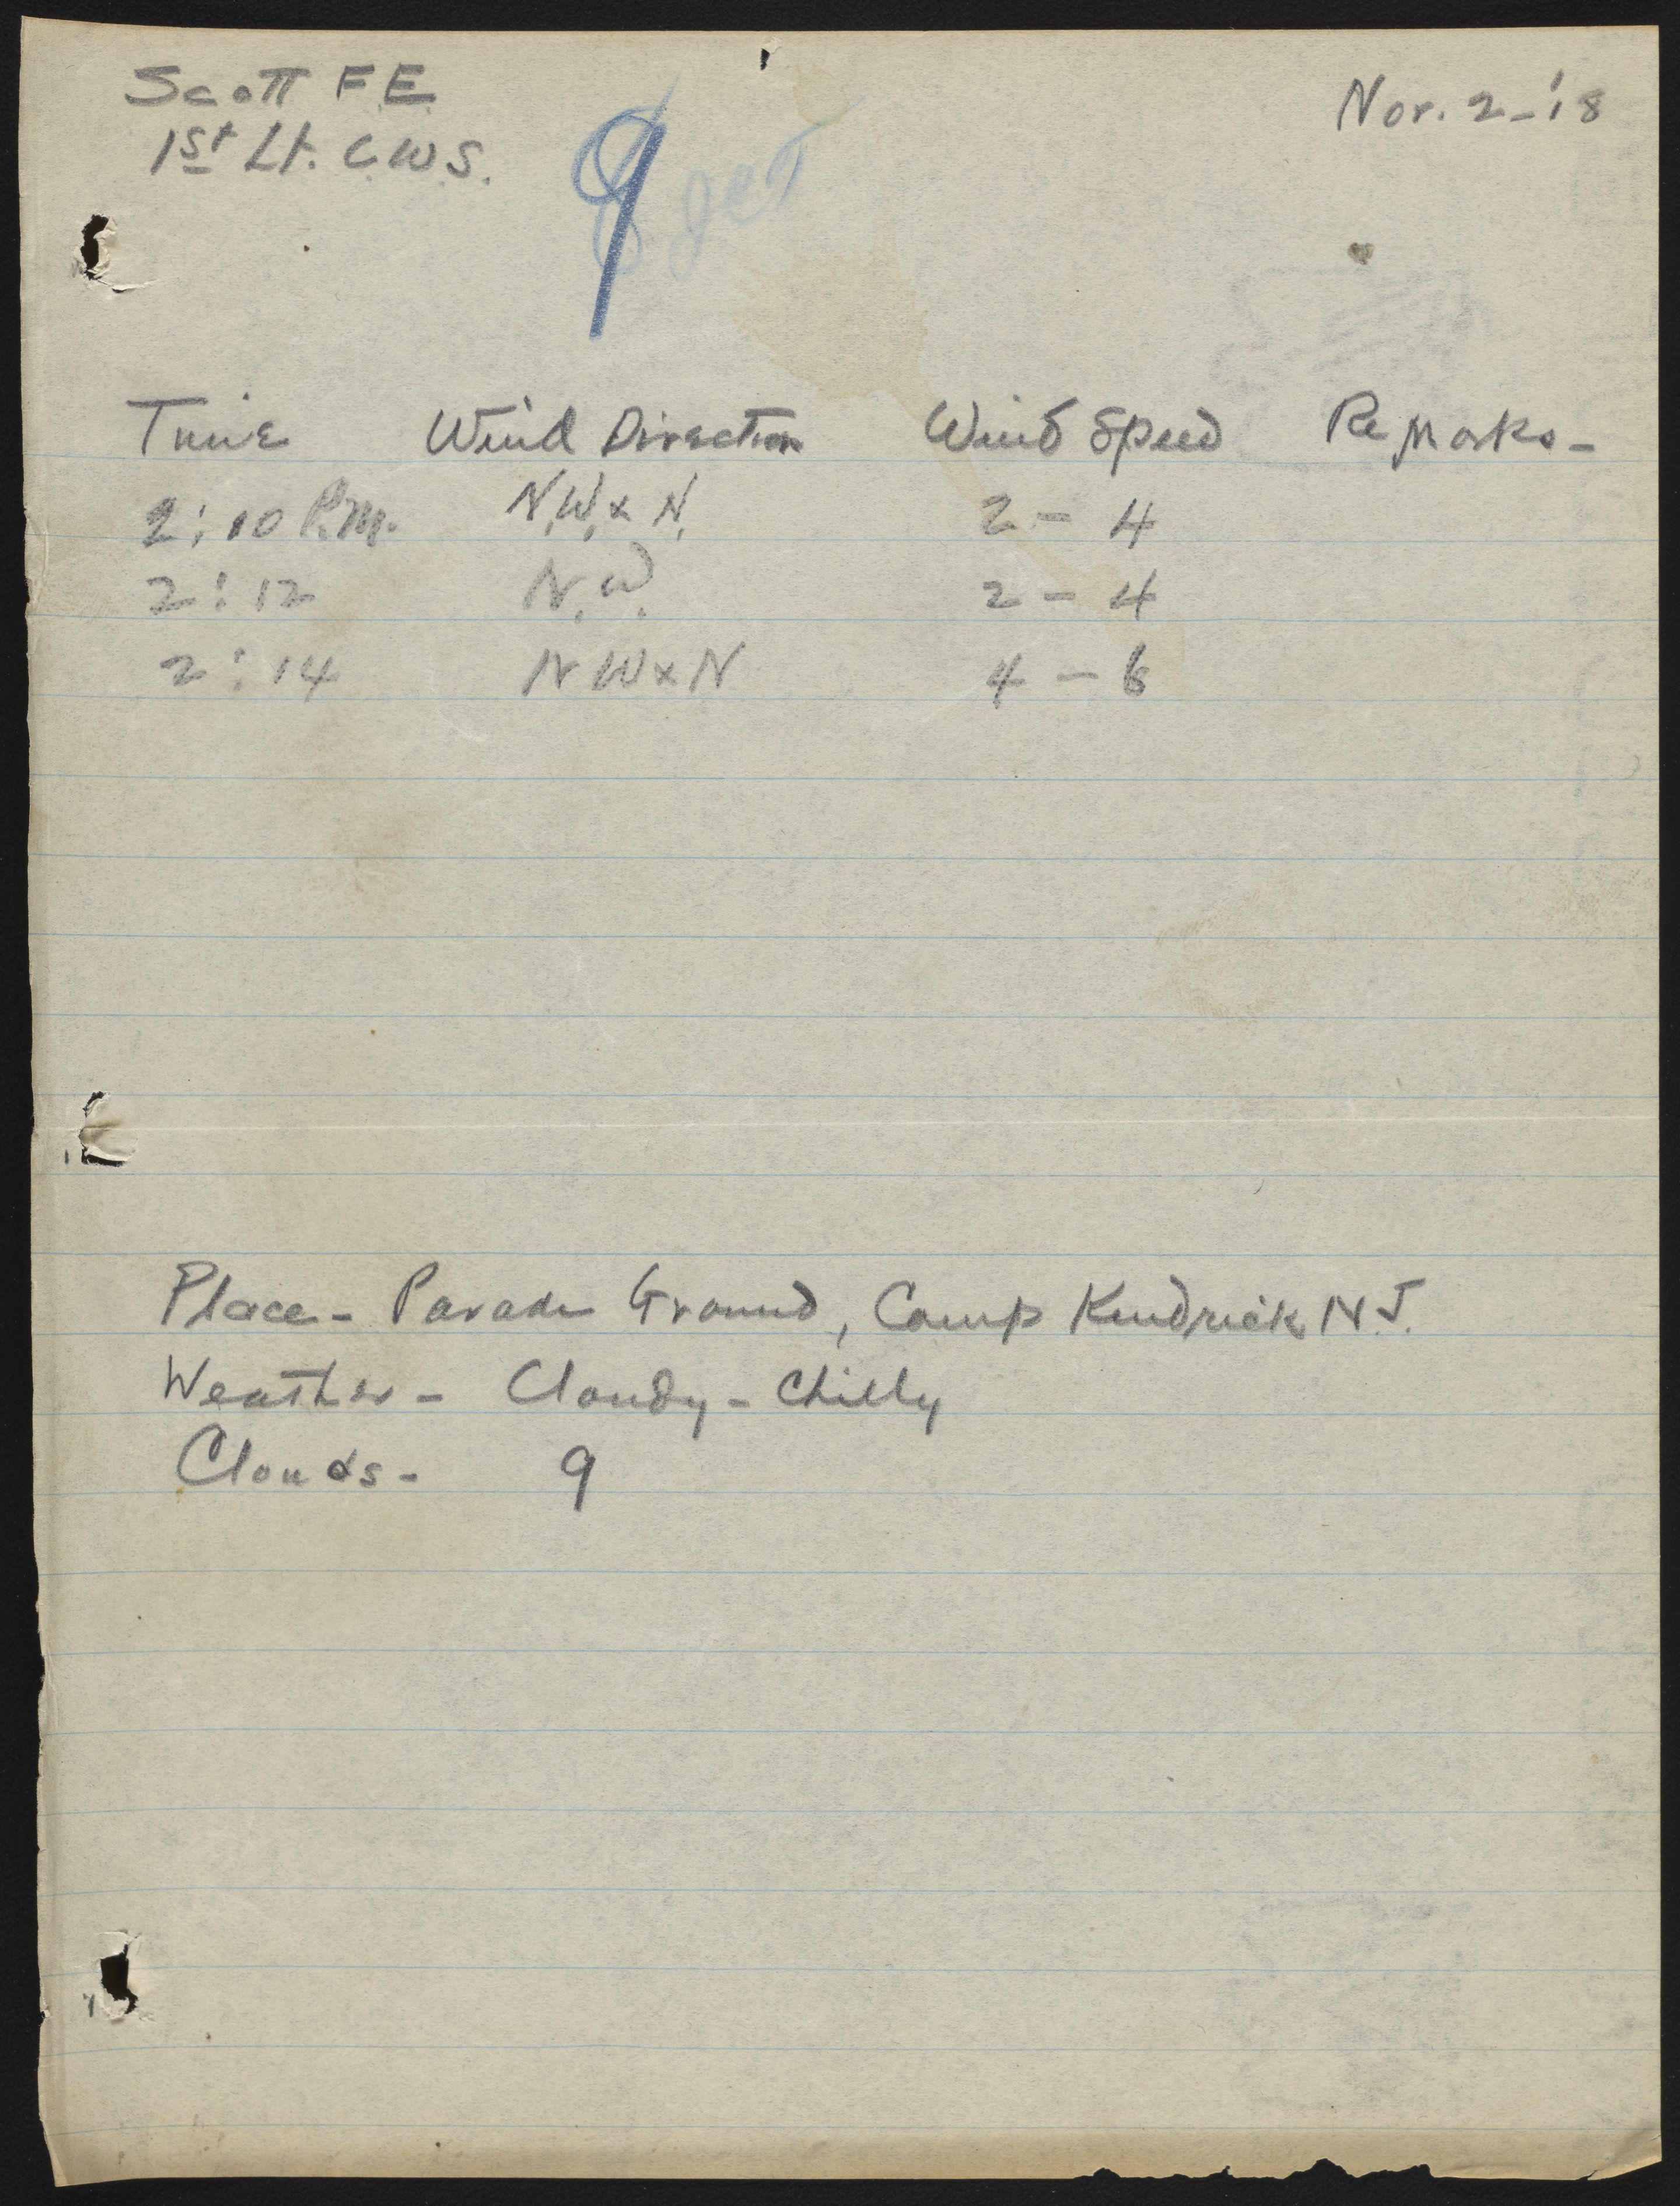 Scott F.E.
1st Lt. C.W.S.
Nov. 2-'18
9
Time Wind Direction Wind Speed Remarks-
2:10 P.M. N.W. x N. 2 - 4
2:12 N.W. 2 - 4
2:14 NW x N 4 - 6
Place - Parade Ground, Camp Kendrick N.J.
Weather - Cloudy - Chilly
Clouds - 9